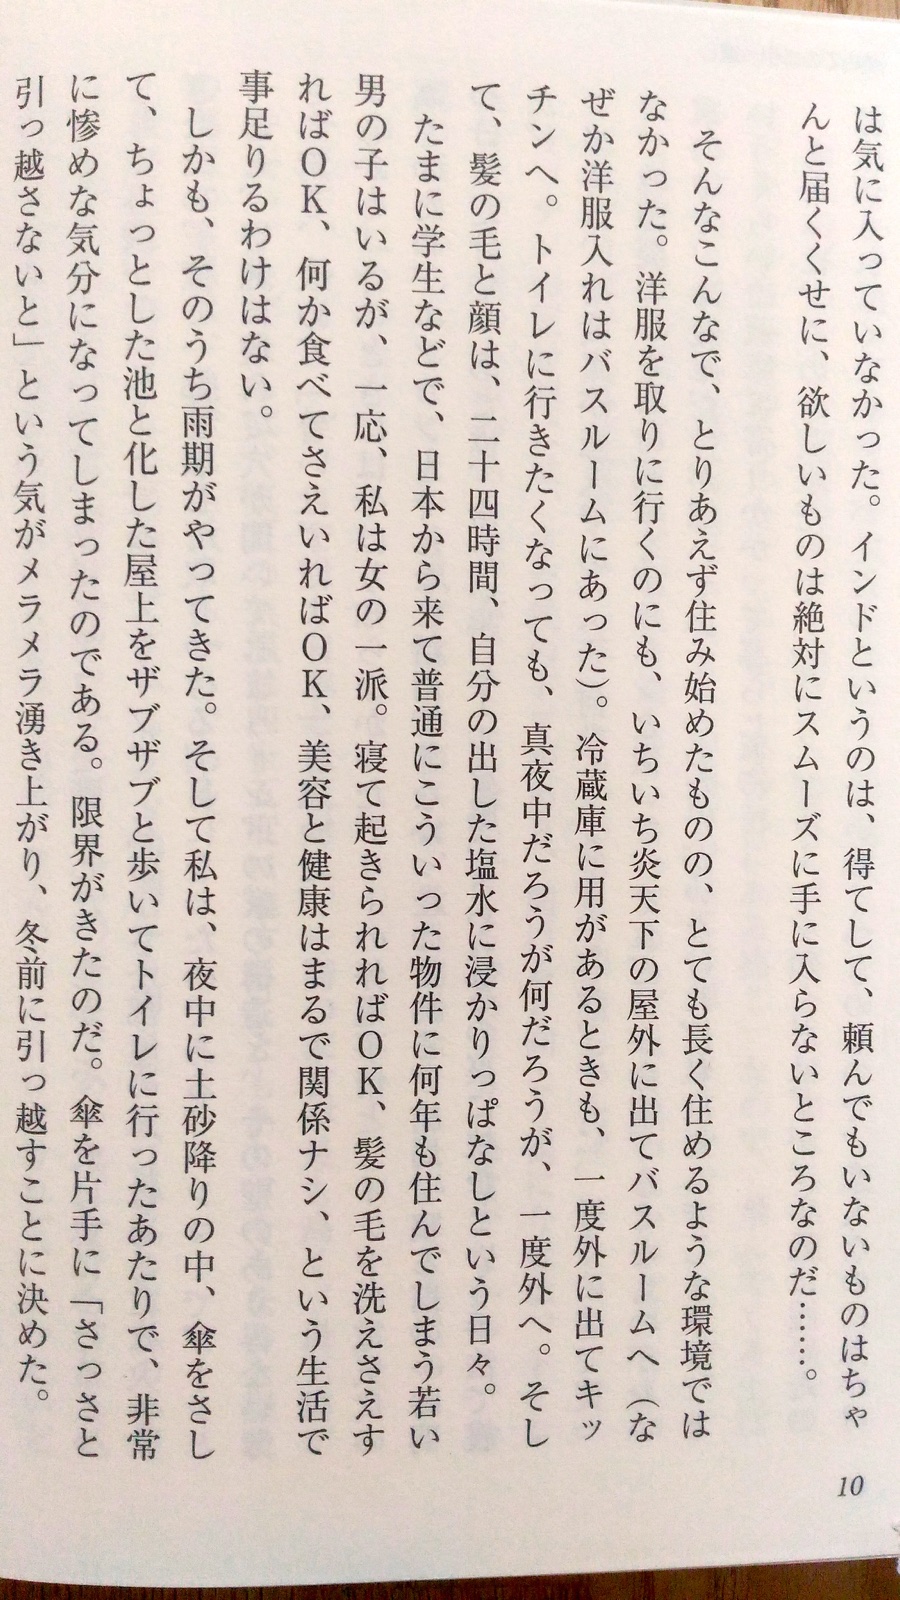 は気に入っていなかった。インドというのは、得てして、頼んでもいないものはちゃ
んと届くくせに、欲しいものは絶対にスムーズに手に入らないところなのだ……。
そんなこんなで、とりあえず住み始めたものの、とても長く住めるような環境では
なかった。洋服を取りに行くのにも、いちいち炎天下の屋外に出てバスルームへ（な
ぜか洋服入れはバスルームにあった）。冷蔵庫に用があるときも、一度外に出てキッ
チンへ。トイレに行きたくなっても、真夜中だろうが何だろうが、一度外へ。そし
て、髪の毛と顔は、二十四時間、自分の出した塩水に浸かりっぱなしという日々。
たまに学生などで、日本から来て普通にこういった物件に何年も住んでしまう若い
男の子はいるが、一応、私は女の一派。寝て起きられればＯＫ、髪の毛を洗えさえす
ればＯＫ、何か食べてさえいればＯＫ、美容と健康はまるで関係ナシ、という生活で
事足りるわけはない。
しかも、そのうち雨期がやってきた。そして私は、夜中に土砂降りの中、傘をさし
て、ちょっとした池と化した屋上をザブザブと歩いてトイレに行ったあたりで、非常
に惨めな気分になってしまったのである。限界がきたのだ。傘を片手に「さっさと
引っ越さないと」という気がメラメラ湧き上がり、冬前に引っ越すことに決めた。
10